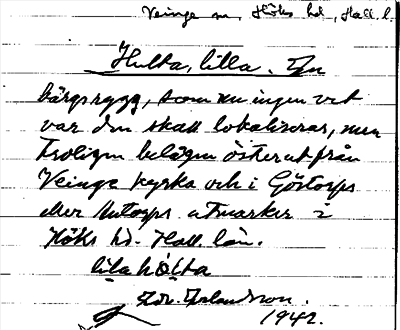 Veinge sn, Höks hd, Hall. l.
Hulta, lilla. En
bärgsrygg, som nu ingen vet
var den skall lokaliseras, men
troligen belägen österut från
Veinge kyrka och i Göstorps
eller utmarker i
Höks hd. Hall. län.
lila hölta
1942.